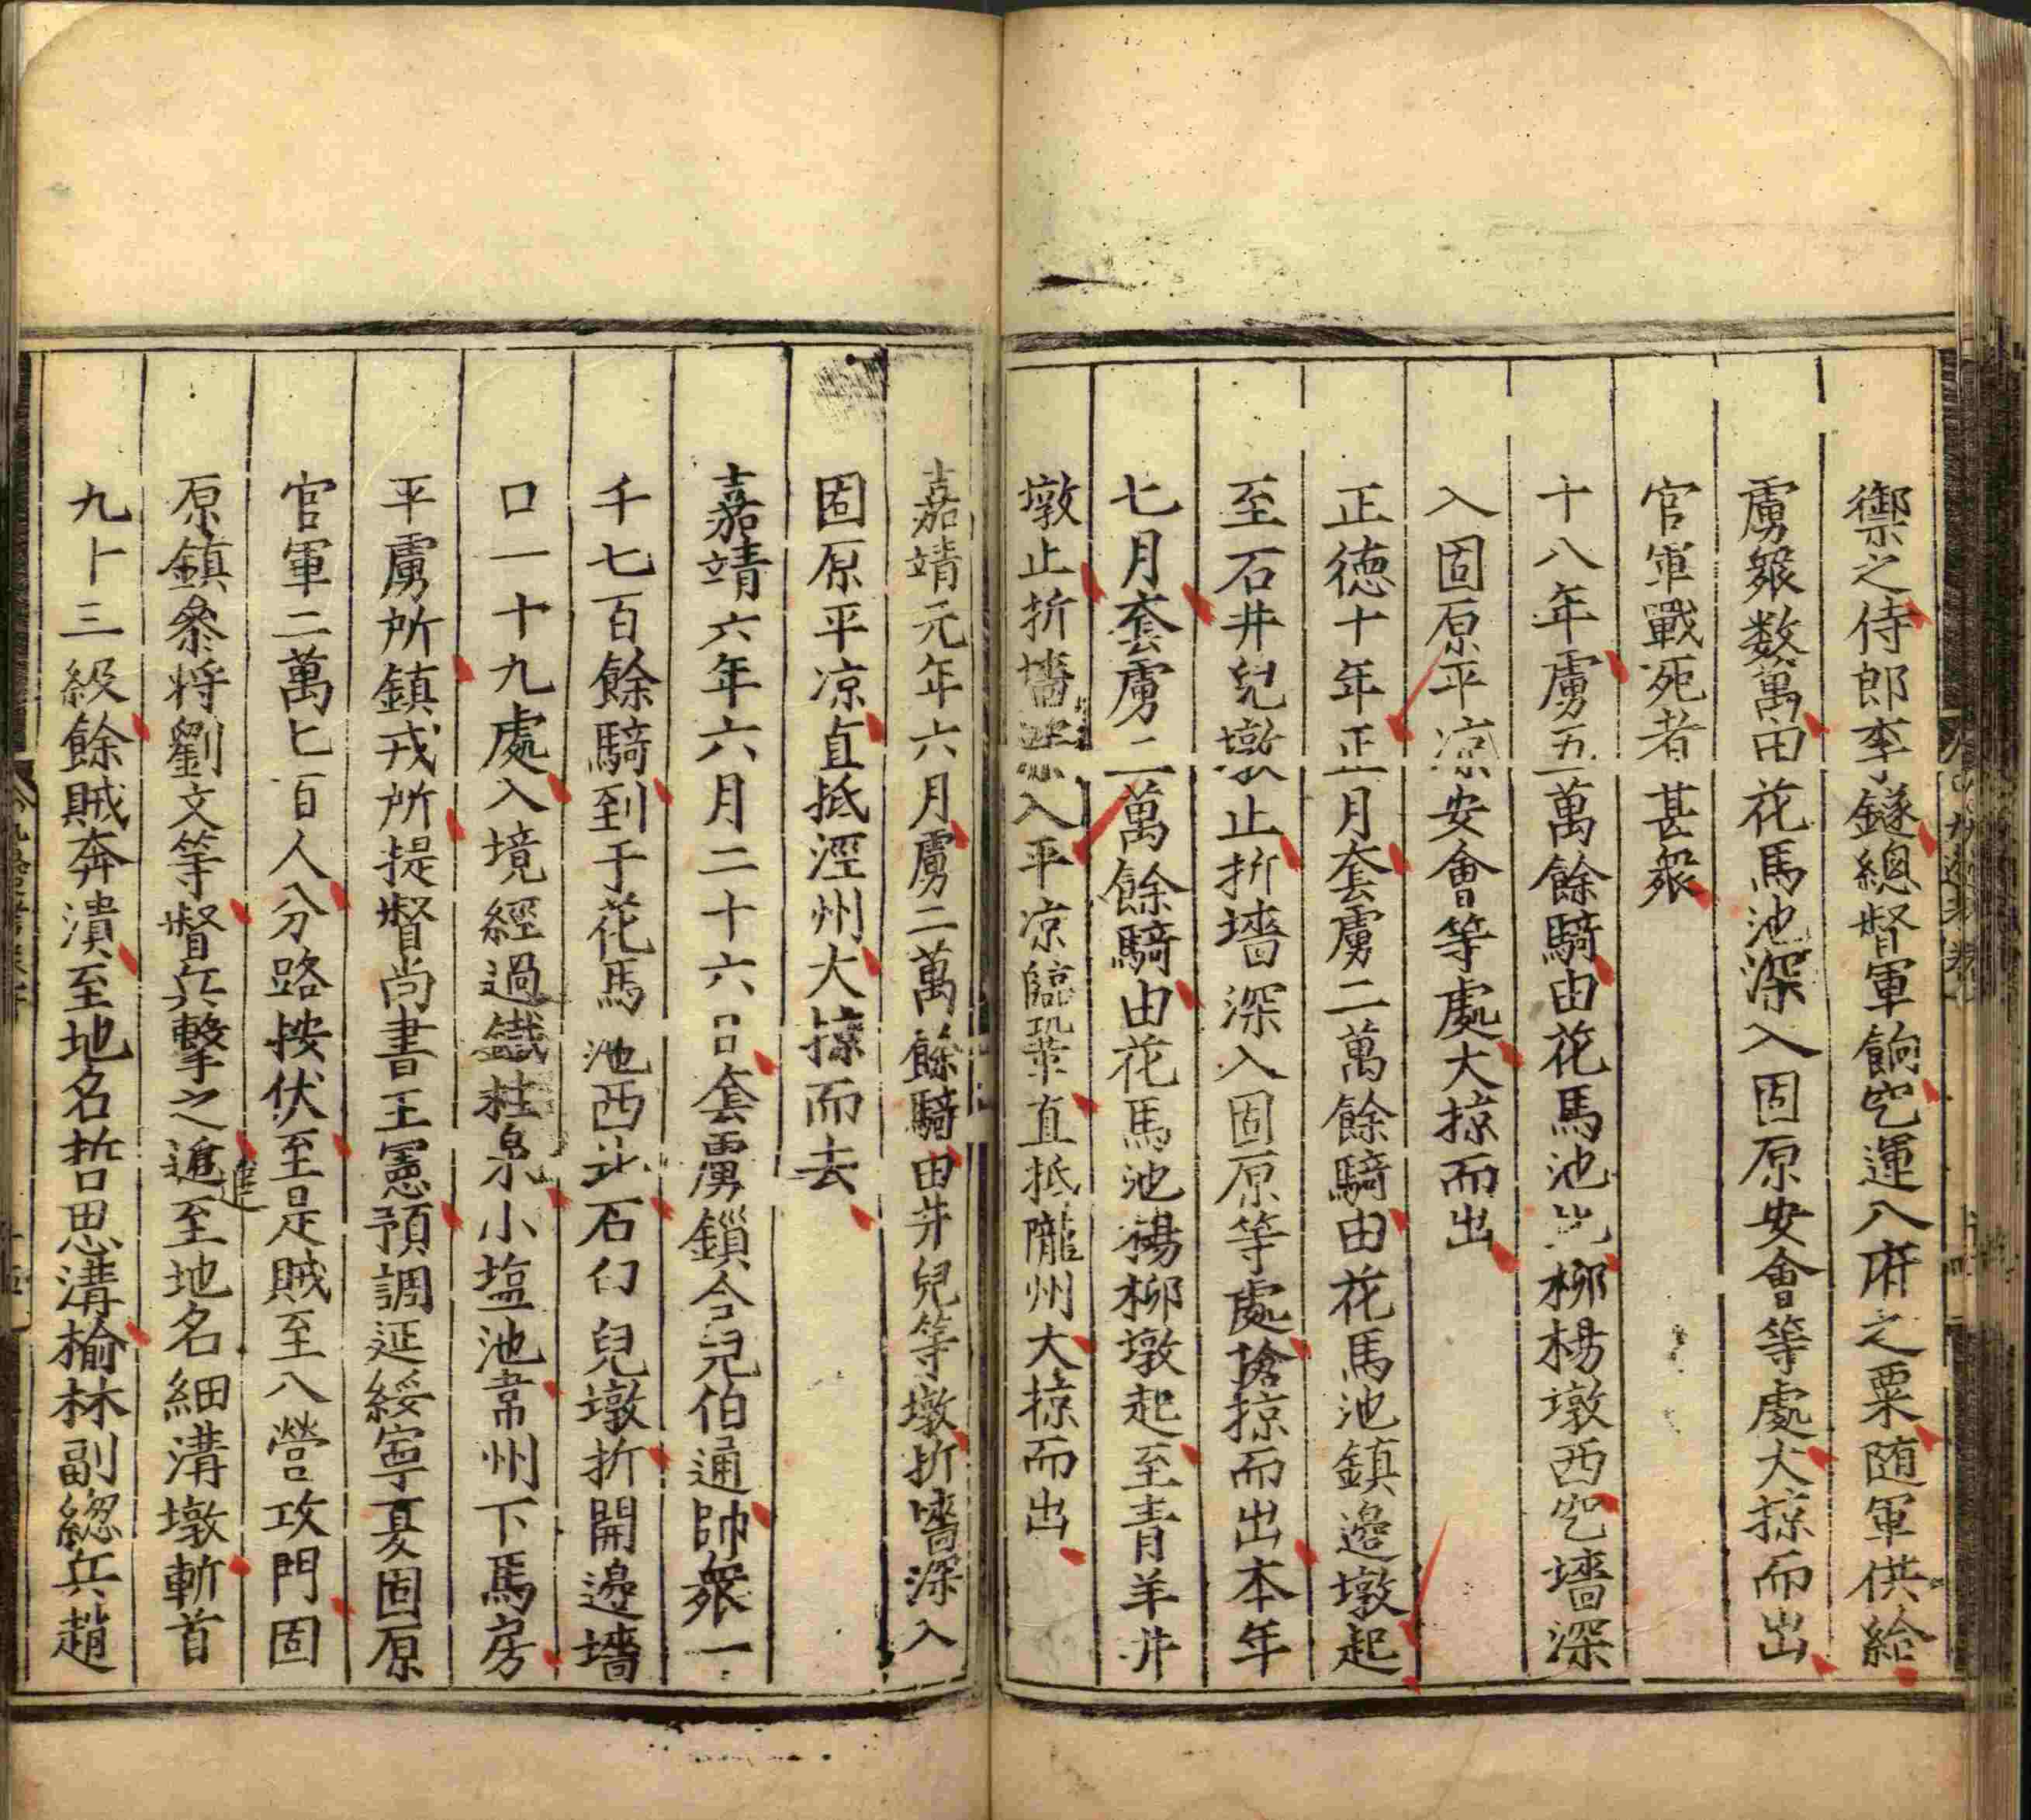 禦之侍郎李鐩總督軍餉䆒運八府之粟随軍供給
虜衆数萬由花馬池深入固原安會等處大掠而出
官軍戰死者甚衆
十八年虜五萬餘騎由花馬池北柳楊墩西空墻深
入固原平凉安會等處大掠而出
正德十年正月套虜二萬餘騎由花馬池鎮邊墩起
至石井兒墩止拆墻深入固原等處搶掠而出本年
七月套虜二萬餘騎由花馬池楊柳墩起至青羊井
墩止折墻深入平凉臨鞏直抵隴州大掠而出
嘉靖元年六月虜二萬餘騎由井兒等墩折墻深入
固原平凉直抵涇州大掠而去
嘉靖六年六月二十六日套虜鎻合兒伯通帥衆一
千七百餘騎到于花馬池西北石臼兒墩折開邊墻
口一十九處入境經過鐵柱泉小塩池韋州下馬房
平虜所鎮戎所提督尚書王憲預調延綏寧夏固原
官軍二萬七百人分路按伏至是賊至八營攻門固
原鎮叅将劉文等督兵擊之進至地名細溝墩斬首
進
九十三級餘賊奔潰至地名哲思溝榆林副總兵趙